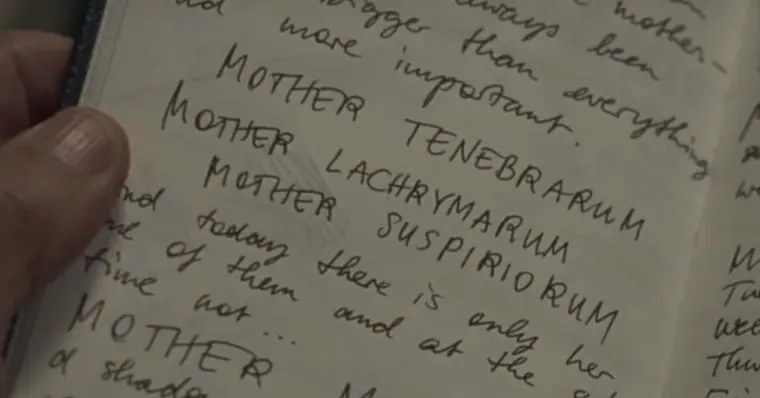 mother-
always been
bigger than everything
and more important.
MOTHER TENEBRARUM
MOTHER LACHRYMARUM
MOTHER SUSPIRIORUM
And today there is only her
one of them and at the
time not...
MOTHER